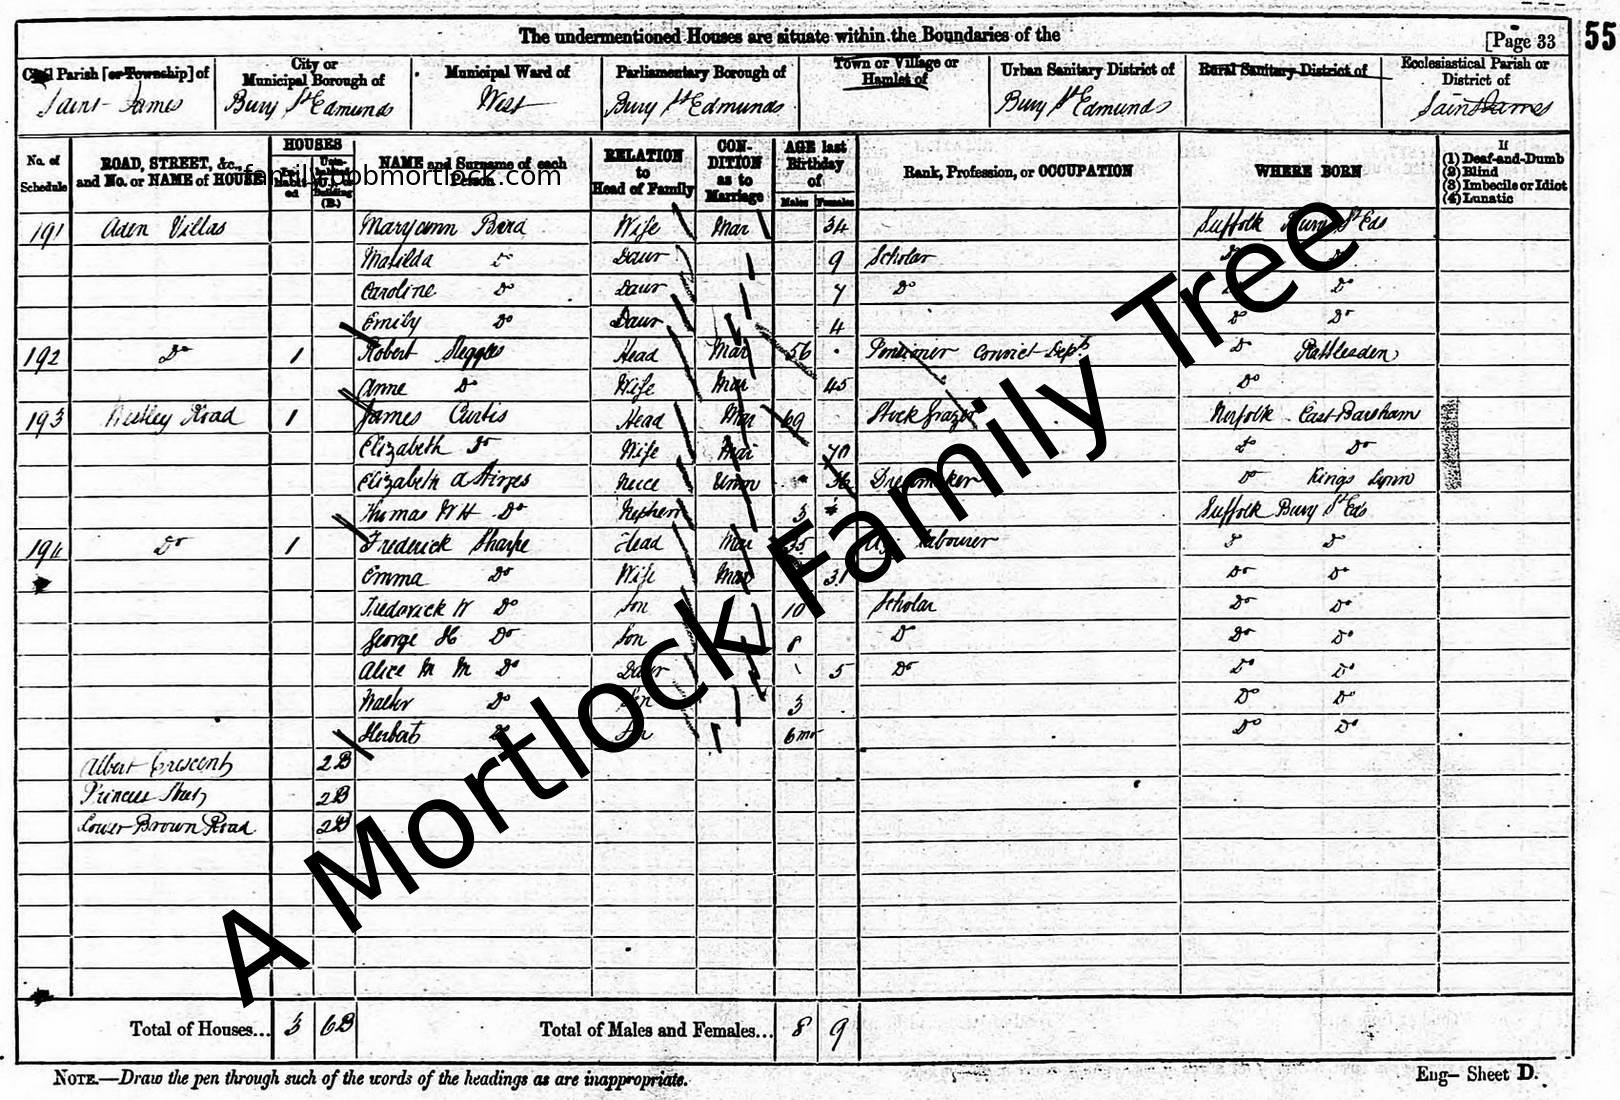 The undermentioned Houses are situate within the Boundaries of the [Page 33 55
Civil Parish [or Township] of City or Municipal Borough of Municipal Ward of Parliamentary Borough of Town or Village or Hamlet of Urban Sanitary District of Rural Sanitary District of Ecclesiastical Parish or District of
Saint James Bury St Edmunds West Bury St Edmunds Bury St Edmunds Saint James
No. of Schedule ROAD, STREET, &c., and No. or NAME of HOUSE HOUSES Inhabited Uninhabited (U.), or Building (B.) NAME and Surname of each Person RELATION to Head of Family CONDITION as to Marriage AGE last Birthday of Males Females Rank, Profession, or OCCUPATION WHERE BORN If (1) Deaf-and-Dumb (2) Blind (3) Imbecile or Idiot (4) Lunatic
family.bobmortlock.com
191 Aden Villas Maryann Bird Wife Mar 34 Suffolk Bury St Eds
Matilda Do Daur 9 Scholar Do Do
Caroline Do Daur 7 Do Do Do
Emily Do Daur 4 Do Do
192 Do 1 Robert Head Mar 56 Pensioner Convict Dept Do Rattlesden
Anne Do Wife Mar 45 Do
193 Westley Road 1 James Curtis Head Mar 69 Stock Grazier Norfolk East Barsham
Elizabeth Do Wife Mar 70 Do Do
Elizabeth a Neice Unm 36 Dressmaker Do Kings Lynn
Thomas W H Do Nephew 3 Suffolk Bury St Eds
194 Do 1 Frederick Sharpe Head Mar 35 Ag Labourer Do Do
Emma Do Wife Mar 31 Do Do
Frederick W Do Son 10 Scholar Do Do
George H Do Son 8 Do Do Do
Alice M M Do Daur 5 Do Do Do
Walter Do Son 3 Do Do
Herbert Do Son 6mo Do Do
Albert Crescent 2B
Princes Street 2B
Lower Brown Road 2B
A Mortlock Family Tree
Total of Houses... 3 6B Total of Males and Females... 8 9
NOTE.—Draw the pen through such of the words of the headings as are inappropriate. Eng— Sheet D.